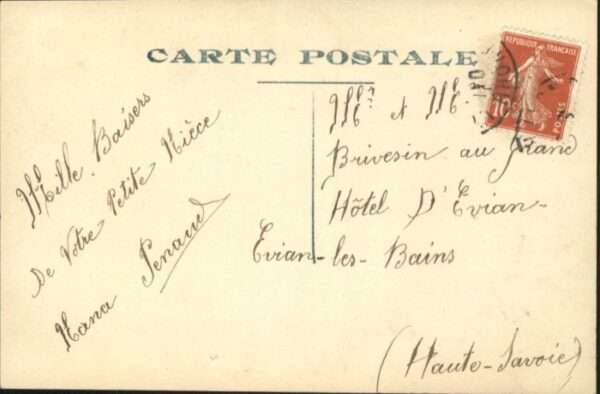 CARTE POSTALE
REPUBLIQUE FRANÇAISE
10c
POSTES
Mille Baisers
De Votre Petite Nièce
Nana Penaud
Mr et Me
Brivesin au Grand
Hôtel D'Evian-
Evian-les-Bains
(Haute-Savoie)